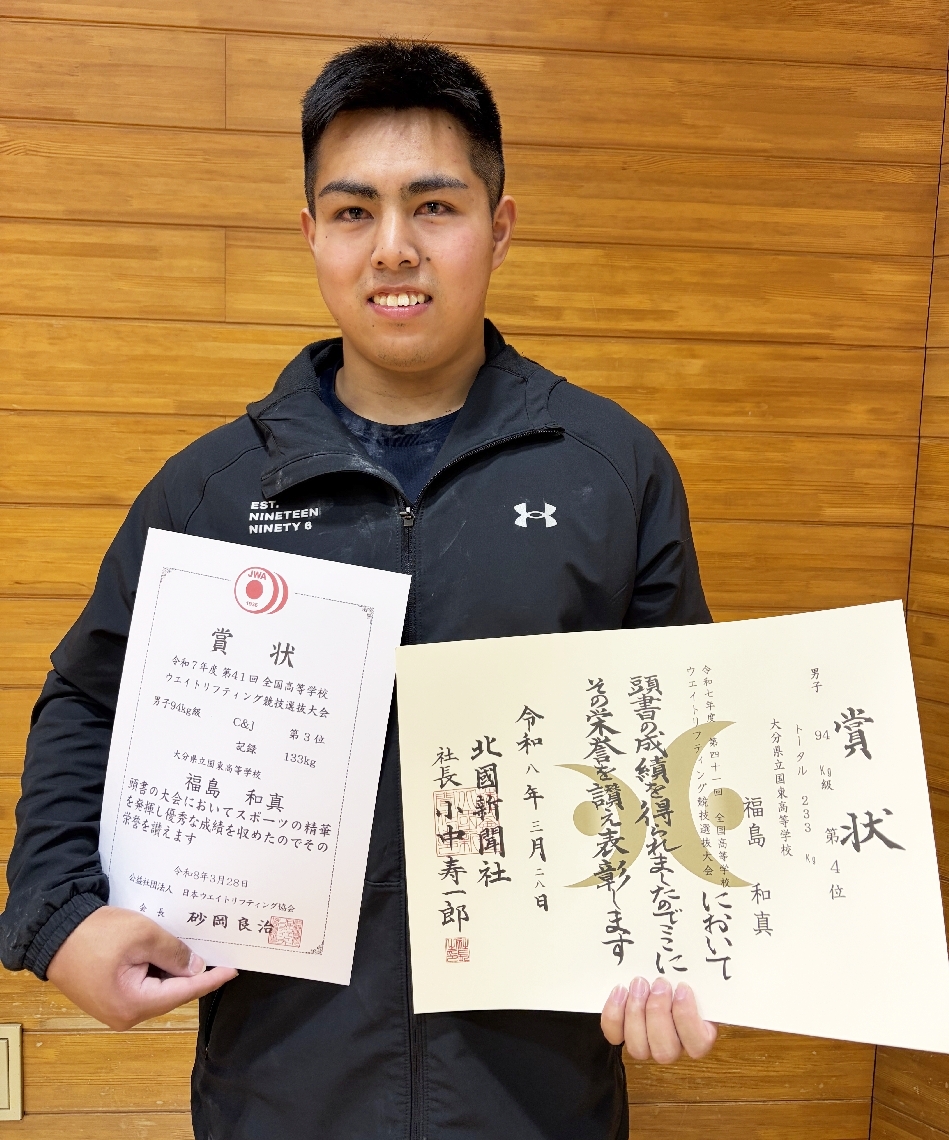 EST.
NINETEEN
NINETY 6
JWA
1936
賞 状
令和7年度 第41回 全国高等学校
ウエイトリフティング競技選抜大会
男子94kg級 C&J 第3位
記録 133kg
大分県立国東高等学校
福島 和真
頭書の大会においてスポーツの精華
を発揮し優秀な成績を収めたのでその
栄誉を讃えます
令和8年3月28日
公益社団法人 日本ウエイトリフティング協会
会長 砂岡良治
賞状
男子 94kg級 第4位
トータル 233kg
大分県立国東高等学校
福島 和真
令和七年度 第四十一回 全国高等学校
ウエイトリフティング競技選抜大会において
頭書の成績を得られましたのでここに
その栄誉を讃え表彰します
令和八年三月二八日
北國新聞社
社長 小中寿一郎